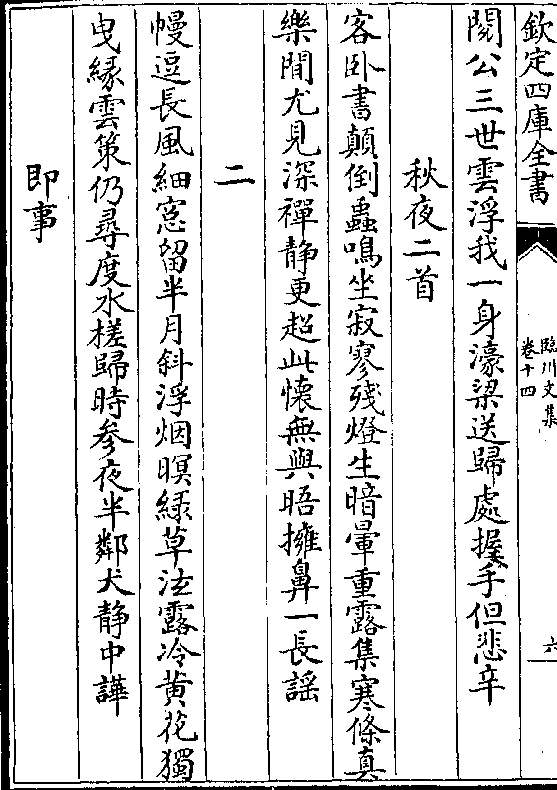 欽定四庫全書
臨川文集
卷十四
六
閱公三世雲浮我一身濠梁送歸處握手但悲辛
秋夜二首
客卧書顛倒蟲鳴坐寂寥殘燈生暗暈重露集寒條真
樂閒尤見深禪静更超此懷無與晤擁鼻一長謡
二
幔逗長風細窓留半月斜浮烟暝緑草泫露冷黄花獨
曳緣雲策仍尋度水槎歸時參夜半鄰犬静中譁
即事